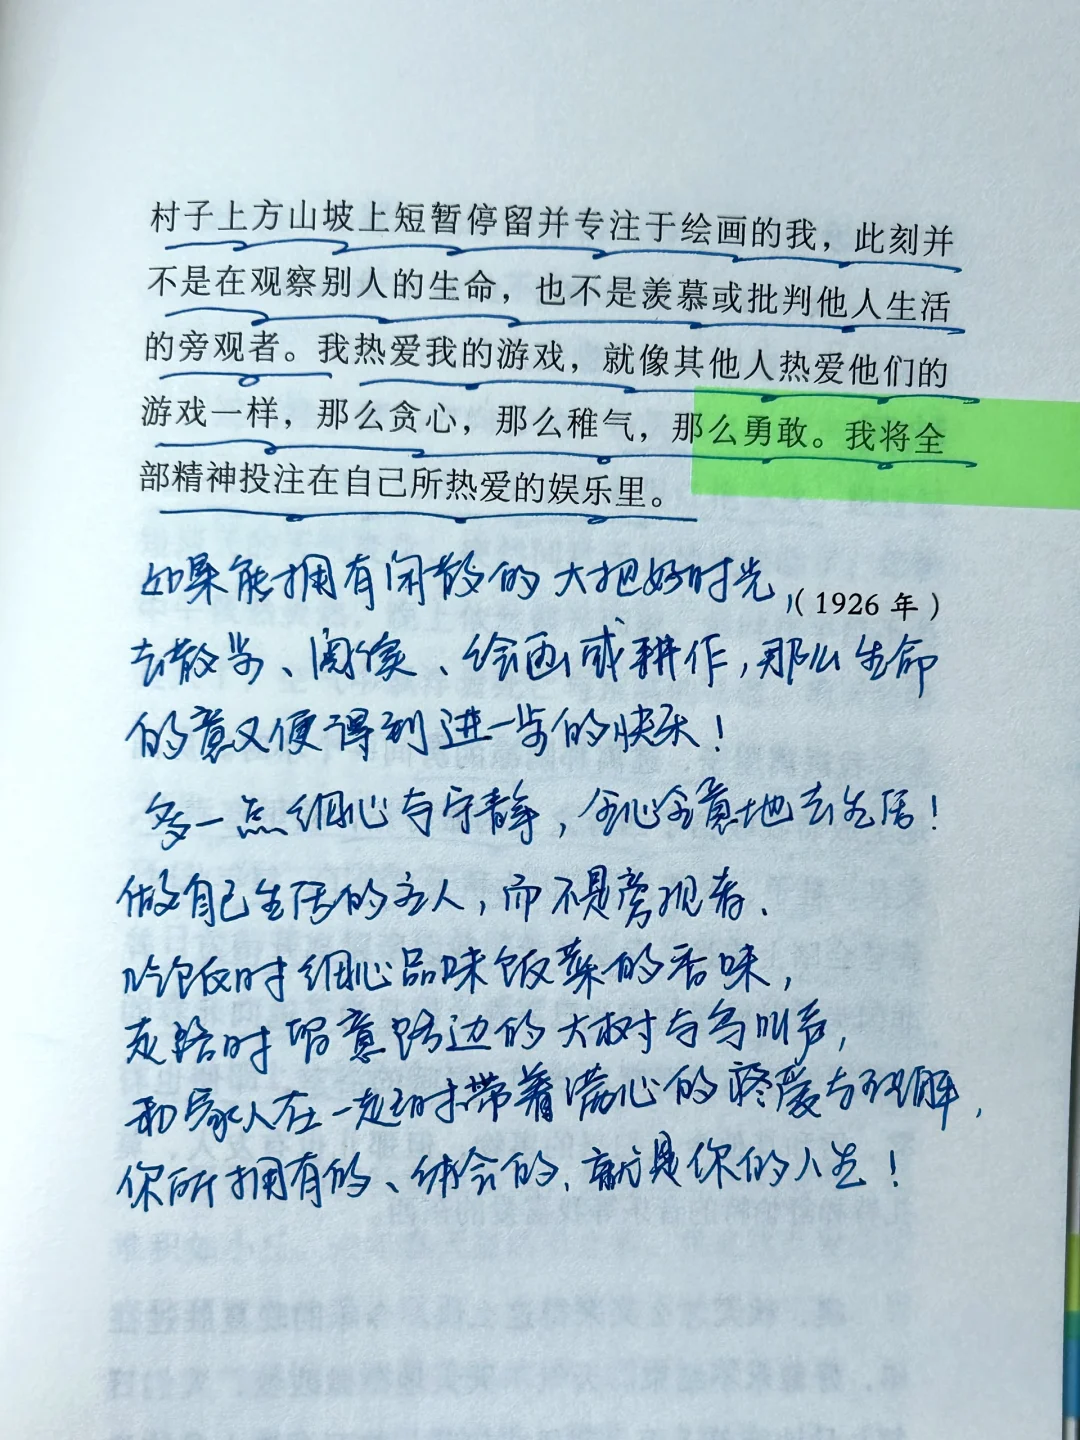 村子上方山坡上短暂停留并专注于绘画的我，此刻并
不是在观察别人的生命，也不是羡慕或批判他人生活
的旁观者。我热爱我的游戏，就像其他人热爱他们的
游戏一样，那么贪心，那么稚气，那么勇敢。我将全
部精神投注在自己所热爱的娱乐里。
如果能拥有闲散的大把好时光，
（1926 年）
去散步、阅读、绘画或耕作，那么生命
的意义便得到进一步的快乐！
多一点细心与宁静，全心全意地去生活！
做自己生活的主人，而不是旁观者、
吃饭时细心品味饭菜的香味，
走路时留意路边的大树与鸟叫声，
和家人在一起时带着满心的疼爱与理解，
你所拥有的、体会的，就是你的人生！